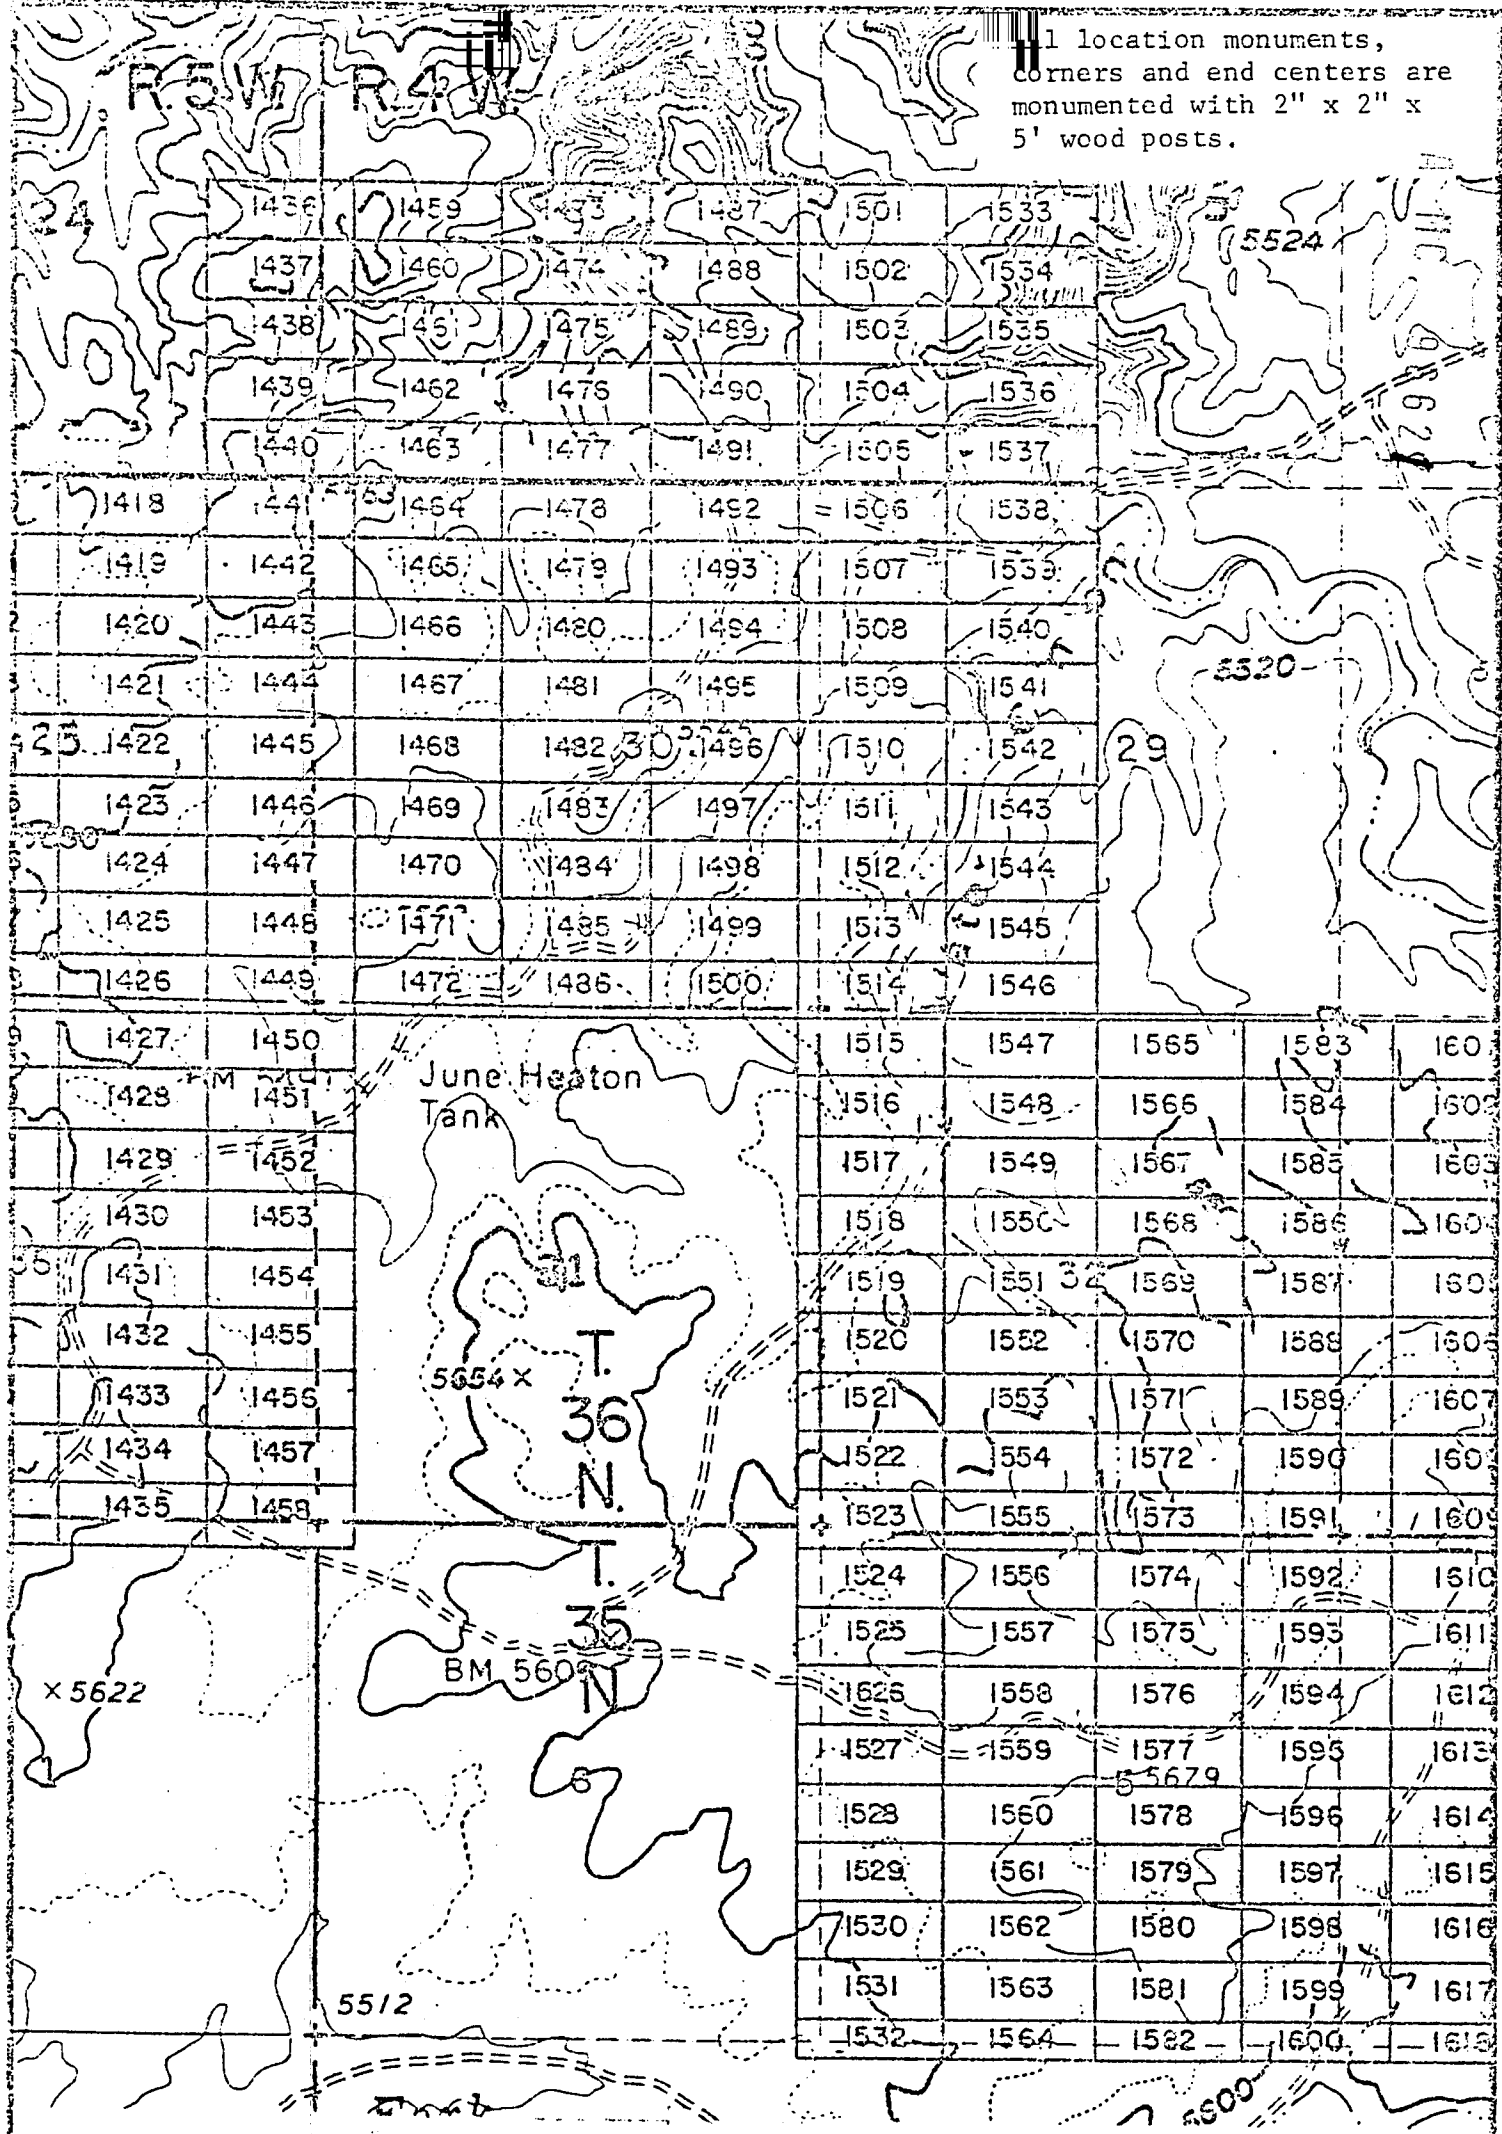 l location monuments,
corners and end centers are
monumented with 2" x 2" x
5' wood posts.
R.5W. R.4W.
24 1436 1459 1473 1487 1501 1533
5524
1437 1460 1474 1488 1502 1534
1438 1461 1475 1489 1503 1535
1439 1462 1476 1490 1504 1536
1440 1463 1477 1491 1505 1537
1418 1441 1464 1478 1492 1506 1538
1419 1442 1465 1479 1493 1507 1539
1420 1443 1466 1480 1494 1508 1540
5520
1421 1444 1467 1481 1495 1509 1541
25 1422 1445 1468 1482 30 1496 1510 1542 29
1423 1446 1469 1483 1497 1511 1543
1424 1447 1470 1484 1498 1512 1544
1425 1448 1471 1485 1499 1513 1545
1426 1449 1472 1486 1500 1514 1546
1427 1450 1515 1547 1565 1583 160
June Heaton
Tank
1428 1451 1516 1548 1566 1584 1602
1429 1452 1517 1549 1567 1585 1603
1430 1453 1518 1550 1568 1586 160
36 1431 1454 31 1519 1551 32 1569 1587 160
1432 1455 1520 1552 1570 1588 160
5654 X
T.
36
N.
1433 1456 1521 1553 1571 1589 1607
1434 1457 1522 1554 1572 1590 160
1435 1458 1523 1555 1573 1591 160
T.
35
N
1524 1556 1574 1592 1610
1525 1557 1575 1593 1611
BM 560
X 5622
1526 1558 1576 1594 1612
1527 1559 1577 1595 1613
6
5 5679
1528 1560 1578 1596 1614
1529 1561 1579 1597 1615
1530 1562 1580 1598 1616
1531 1563 1581 1599 1617
5512
1532 1564 1582 1600 1618
5600